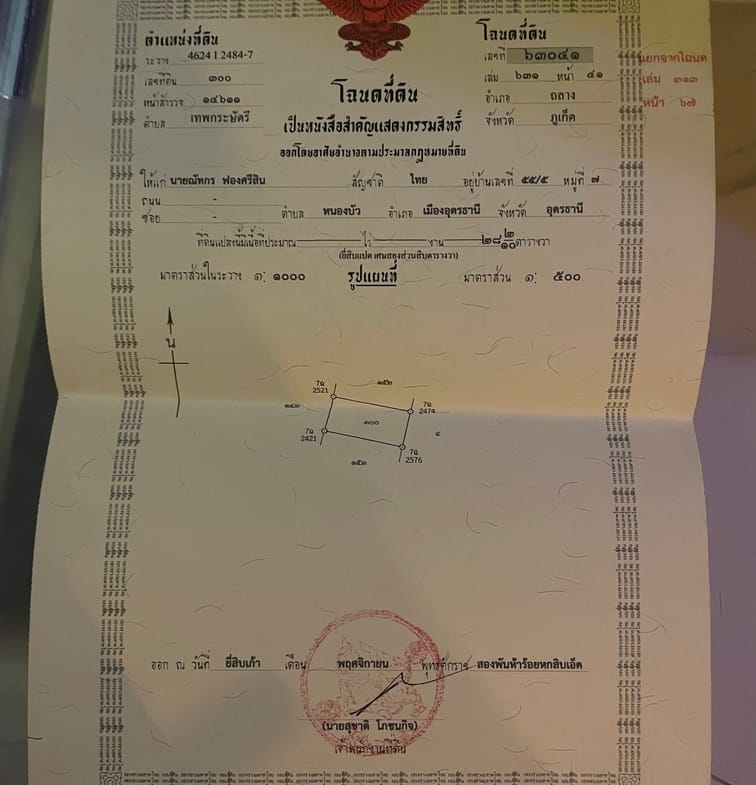 ตำแหน่งที่ดิน
ระวาง 4624 I 2484-7
เลขที่ดิน ๓๐๐
หน้าสำรวจ ๑๔๖๑๑
ตำบล เทพกระษัตรี
โฉนดที่ดิน
เลขที่ ๖๓๐๔๑
เล่ม ๖๓๑ หน้า ๔๑
อำเภอ ถลาง
จังหวัด ภูเก็ต
แยกจากโฉนด
เล่ม ๓๑๓
หน้า ๖๗
โฉนดที่ดิน
เป็นหนังสือสำคัญแสดงกรรมสิทธิ์
ออกโดยอาศัยอำนาจตามประมวลกฎหมายที่ดิน
ให้แก่ นายณัทกร ฟองศรีสิน สัญชาติ ไทย อยู่บ้านเลขที่ ๕๕/๕ หมู่ที่ ๗
ถนน -
ซอย - ตำบล หนองบัว อำเภอ เมืองอุดรธานี จังหวัด อุดรธานี
ที่ดินแปลงนี้มีเนื้อที่ประมาณ ไร่ งาน ๒๘ ๒/๑๐ ตารางวา
(ยี่สิบแปด เศษสองส่วนสิบตารางวา)
มาตราส่วนในระวาง ๑: ๑๐๐๐ รูปแผนที่ มาตราส่วน ๑: ๕๐๐
น
๗ฉ 2521
๑๕๒
๗ฉ 2474
๑๔๓
๓๐๐
๔
๗ฉ 2421
๗ฉ 2576
๑๕๓
ออก ณ วันที่ ยี่สิบเก้า เดือน พฤศจิกายน พุทธศักราช สองพันห้าร้อยหกสิบเอ็ด
(นายสุชาติ โภชนกิจ)
เจ้าพนักงานที่ดิน